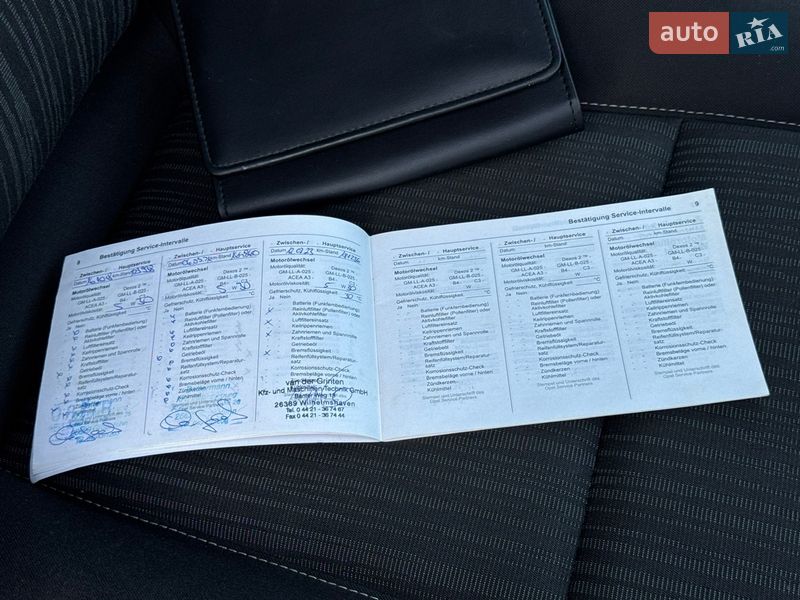 auto RIA .com
8
Bestätigung Service-Intervalle
Zwischen- / Hauptservice
Datum km-Stand
Motorölwechsel
Motorölqualität: Dexos 2 ™
GM-LL-A-025 GM-LL-B-025
ACEA A3 B4
Motorölviskosität: 5 W
Gefrierschutz, Kühlflüssigkeit °C
Ja Nein
Batterie (Funkfernbedienung)
Reinluftfilter (Pollenfilter) oder
Aktivkohlefilter
Luftfiltereinsatz
Keilrippenriemen
Zahnriemen und Spannrolle
Kraftstofffilter
Getriebeöl
Bremsflüssigkeit
Reifenfüllsystem/Reparatur-
satz
Korrosionsschutz-Check
Bremsbeläge vorne / hinten
Zündkerzen
Zwischen- / Hauptservice
Datum km-Stand
Motorölwechsel
Motorölqualität: Dexos 2 ™
GM-LL-A-025 GM-LL-B-025
ACEA A3 B4
Motorölviskosität: 5 W 30
Gefrierschutz, Kühlflüssigkeit °C
Ja Nein
Batterie (Funkfernbedienung)
Reinluftfilter (Pollenfilter) oder
Aktivkohlefilter
Luftfiltereinsatz
Keilrippenriemen
Zahnriemen und Spannrolle
Kraftstofffilter
Getriebeöl
Bremsflüssigkeit
Reifenfüllsystem/Reparatur-
satz
Korrosionsschutz-Check
Bremsbeläge vorne / hinten
Zwischen- / Hauptservice
Datum km-Stand
Motorölwechsel
Motorölqualität: Dexos 2 ™
GM-LL-A-025 GM-LL-B-025
ACEA A3 B4
Motorölviskosität: 5 W
Gefrierschutz, Kühlflüssigkeit °C
Ja Nein
Batterie (Funkfernbedienung)
Reinluftfilter (Pollenfilter) oder
Aktivkohlefilter
Luftfiltereinsatz
Keilrippenriemen
Zahnriemen und Spannrolle
Kraftstofffilter
Getriebeöl
Bremsflüssigkeit
Reifenfüllsystem/Reparatur-
satz
Korrosionsschutz-Check
Bremsbeläge vorne / hinten
van der Grinten
Kfz- und Maschinen-Technik GmbH
Banter Weg 18
26389 Wilhelmshaven
Tel. 0 44 21 - 36 74 67
Fax 0 44 21 - 36 74 44
Bestätigung Service-Intervalle
9
Zwischen- / Hauptservice
Datum km-Stand
Motorölwechsel
Motorölqualität: Dexos 2 ™
GM-LL-A-025 GM-LL-B-025
ACEA A3 B4 C3
Motorölviskosität: W
Gefrierschutz, Kühlflüssigkeit °C
Ja Nein
Batterie (Funkfernbedienung)
Reinluftfilter (Pollenfilter) oder
Aktivkohlefilter
Luftfiltereinsatz
Keilrippenriemen
Zahnriemen und Spannrolle
Kraftstofffilter
Getriebeöl
Bremsflüssigkeit
Reifenfüllsystem/Reparatur-
satz
Korrosionsschutz-Check
Bremsbeläge vorne / hinten
Zündkerzen
Kühlmittel
Stempel und Unterschrift des
Opel Service Partners
Zwischen- / Hauptservice
Datum km-Stand
Motorölwechsel
Motorölqualität: Dexos 2 ™
GM-LL-A-025 GM-LL-B-025
ACEA A3 B4 C3
Motorölviskosität: W
Gefrierschutz, Kühlflüssigkeit °C
Ja Nein
Batterie (Funkfernbedienung)
Reinluftfilter (Pollenfilter) oder
Aktivkohlefilter
Luftfiltereinsatz
Keilrippenriemen
Zahnriemen und Spannrolle
Kraftstofffilter
Getriebeöl
Bremsflüssigkeit
Reifenfüllsystem/Reparatur-
satz
Korrosionsschutz-Check
Bremsbeläge vorne / hinten
Zündkerzen
Kühlmittel
Stempel und Unterschrift des
Opel Service Partners
Zwischen- / Hauptservice
Datum km-Stand
Motorölwechsel
Motorölqualität: Dexos 2 ™
GM-LL-A-025 GM-LL-B-025
ACEA A3 B4 C3
Motorölviskosität: W
Gefrierschutz, Kühlflüssigkeit °C
Ja Nein
Batterie (Funkfernbedienung)
Reinluftfilter (Pollenfilter) oder
Aktivkohlefilter
Luftfiltereinsatz
Keilrippenriemen
Zahnriemen und Spannrolle
Kraftstofffilter
Getriebeöl
Bremsflüssigkeit
Reifenfüllsystem/Reparatur-
satz
Korrosionsschutz-Check
Bremsbeläge vorne / hinten
Zündkerzen
Kühlmittel
Stempel und Unterschrift des
Opel Service Partners